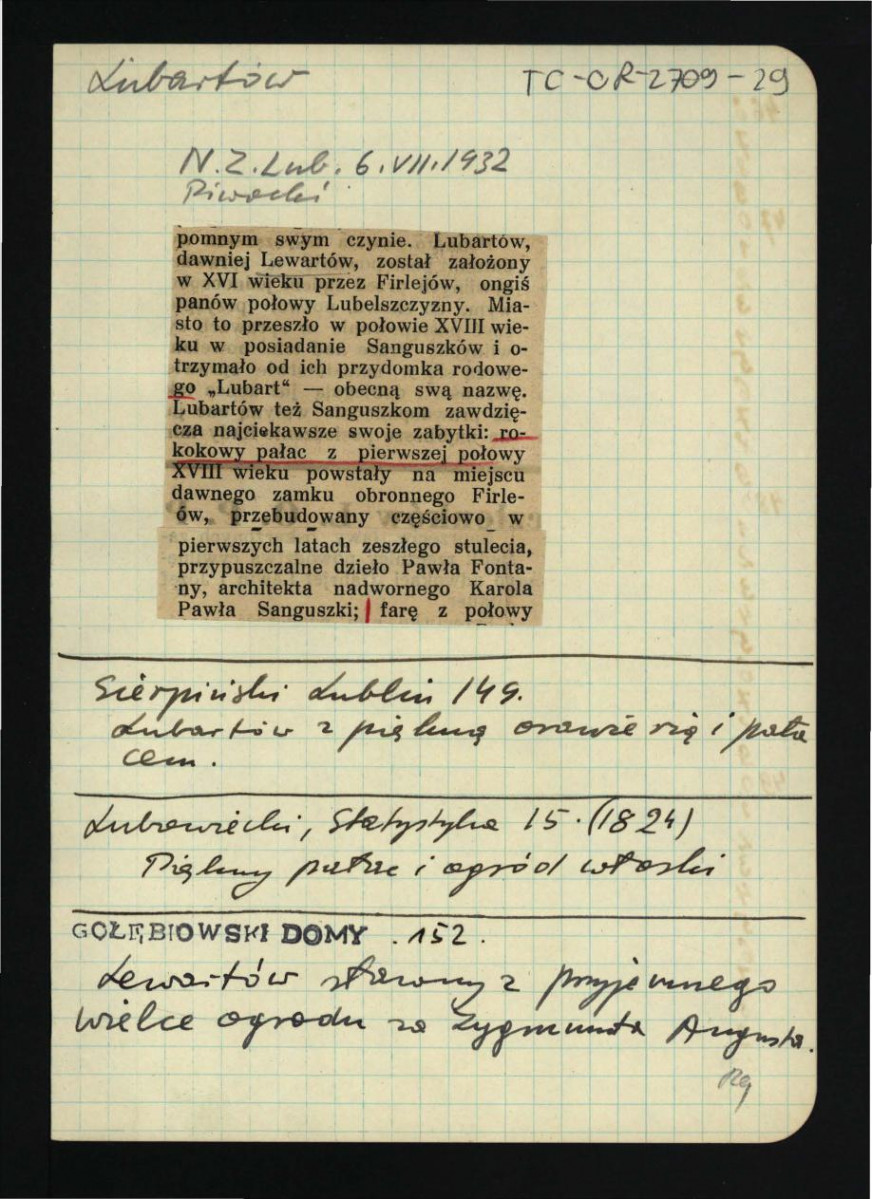 Lubartów TC-OR-2709-29
N.Z.Lub. 6.VII.1932
Piwocki
pomnym swym czynie. Lubartów,
dawniej Lewartów, został założony
w XVI wieku przez Firlejów, ongiś
panów połowy Lubelszczyzny. Mia-
sto to przeszło w połowie XVIII wie-
ku w posiadanie Sanguszków i o-
trzymało od ich przydomka rodowe-
go „Lubart“ — obecną swą nazwę.
Lubartów też Sanguszkom zawdzię-
cza najciekawsze swoje zabytki: ro-
kokowy pałac z pierwszej połowy
XVIII wieku powstały na miejscu
dawnego zamku obronnego Firle-
ów, przebudowany częściowo w
pierwszych latach zeszłego stulecia,
przypuszczalne dzieło Pawła Fonta-
ny, architekta nadwornego Karola
Pawła Sanguszki; farę z połowy
Sierpiński Lublin 149.
Lubartów z piękną oranżerią i pała
cem.
Lubowiecki, Statystyka 15. (1824)
Piękny pałac i ogród włoski
GOŁĘBIOWSKI DOMY . 152.
Lewartów sławny z przyjemnego
wielce ogrodu za Zygmunta Augusta.